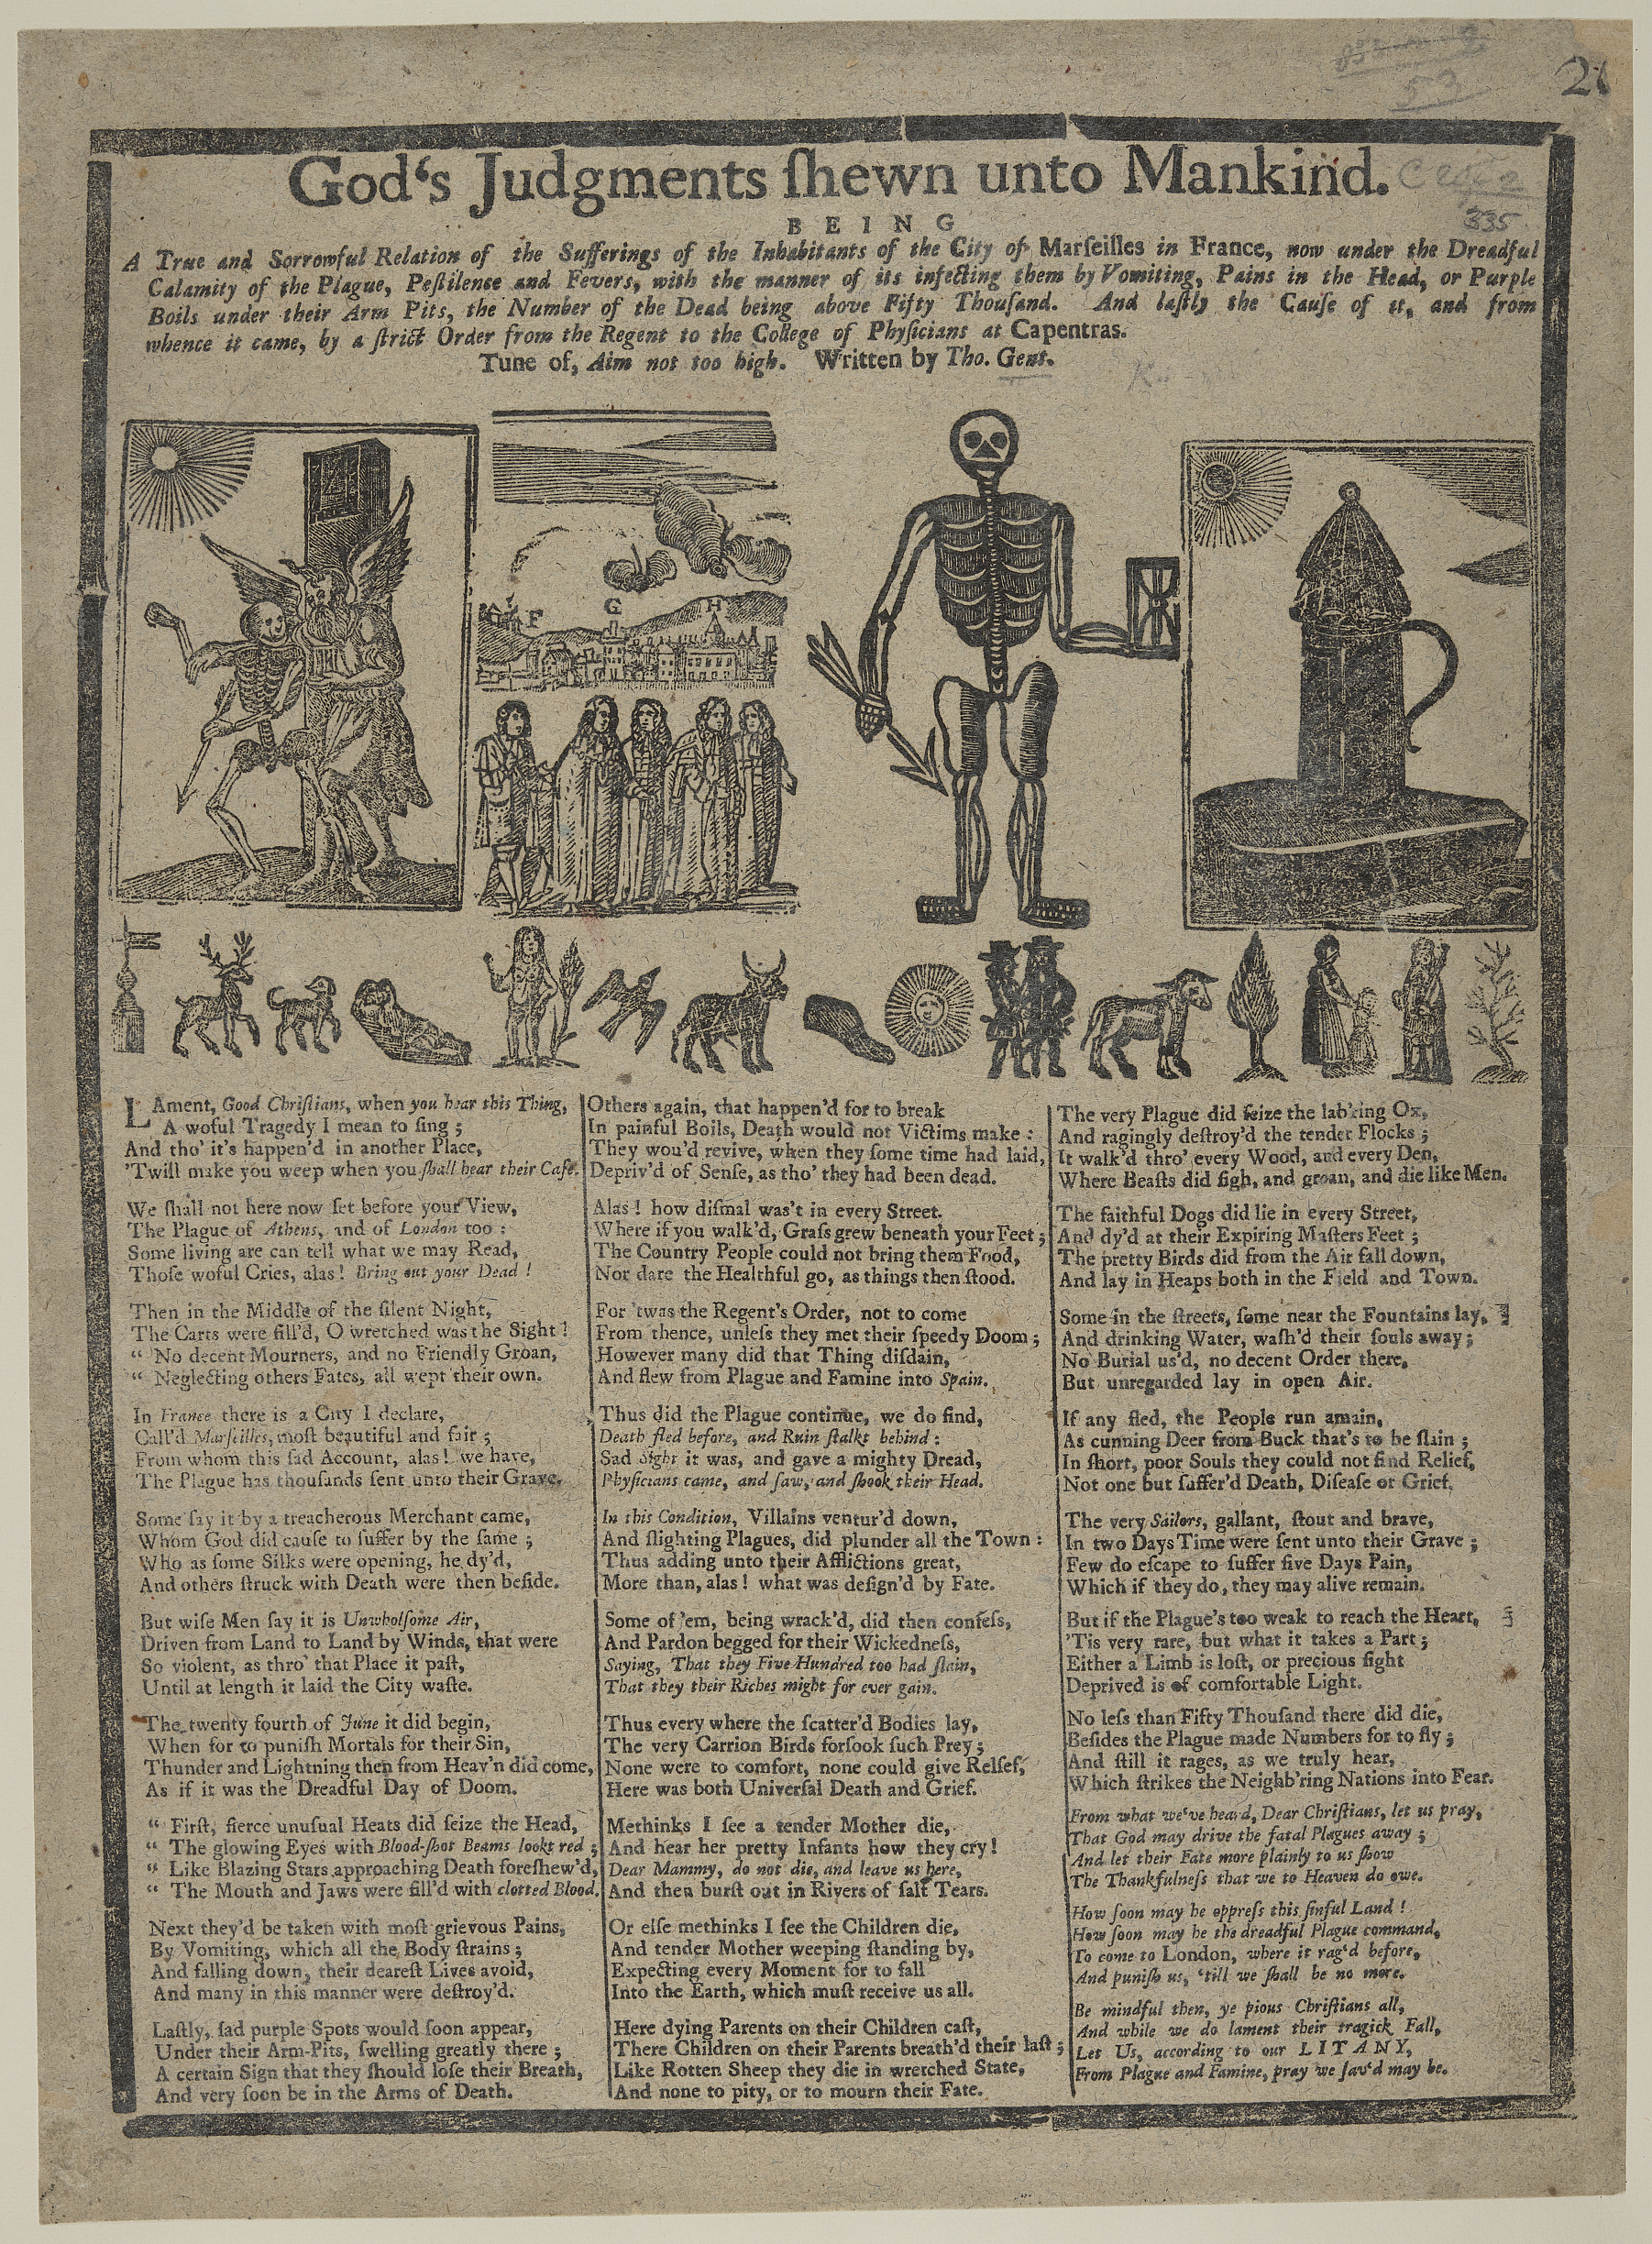 21
53
335
God's Judgments ſhewn unto Mankind.
BEING
A True and Sorrowful Relation of the Sufferings of the Inhabitants of the City of Marſeilles in France, now under the Dreadful
Calamity of the Plague, Peſtilence and Fevers, with the manner of its infecting them by Vomiting, Pains in the Head, or Purple
Boils under their Arm Pits, the Number of the Dead being above Fifty Thouſand. And laſtly the Cauſe of it, and from
whence it came, by a ſtrict Order from the Regent to the College of Phyſicians at Capentras.
Tune of, Aim not too high. Written by Tho. Gent.
F G H
LAment, Good Chriſtians, when you hear this Thing,
A woful Tragedy I mean to ſing;
And tho' it's happen'd in another Place,
'Twill make you weep when you ſhall hear their Caſe.
We ſhall not here now ſet before your View,
The Plague of Athens, and of London too:
Some living are can tell what we may Read,
Thoſe woful Cries, alas! Bring out your Dead!
Then in the Middle of the ſilent Night,
The Carts were fill'd, O wretched was the Sight!
“ No decent Mourners, and no Friendly Groan,
“ Neglecting others Fates, all wept their own.
In France there is a City I declare,
Call'd Marſeilles, moſt beautiful and fair;
From whom this ſad Account, alas! we have,
The Plague has thouſands ſent unto their Grave.
Some ſay it by a treacherous Merchant came,
Whom God did cauſe to ſuffer by the ſame;
Who as ſome Silks were opening, he dy'd,
And others ſtruck with Death were then beſide.
But wiſe Men ſay it is Unwholſome Air,
Driven from Land to Land by Winds, that were
So violent, as thro' that Place it paſt,
Until at length it laid the City waſte.
The twenty fourth of June it did begin,
When for to puniſh Mortals for their Sin,
Thunder and Lightning then from Heav'n did come,
As if it was the Dreadful Day of Doom.
“ Firſt, fierce unuſual Heats did ſeize the Head,
“ The glowing Eyes with Blood-ſhot Beams lookt red;
“ Like Blazing Stars approaching Death foreſhew'd,
“ The Mouth and Jaws were fill'd with clotted Blood.
Next they'd be taken with moſt grievous Pains,
By Vomiting, which all the Body ſtrains;
And falling down, their deareſt Lives avoid,
And many in this manner were deſtroy'd.
Laſtly, ſad purple Spots would ſoon appear,
Under their Arm-Pits, ſwelling greatly there;
A certain Sign that they ſhould loſe their Breath,
And very ſoon be in the Arms of Death.
Others again, that happen'd for to break
In painful Boils, Death would not Victims make:
They wou'd revive, when they ſome time had laid,
Depriv'd of Senſe, as tho' they had been dead.
Alas! how diſmal was't in every Street.
Where if you walk'd, Graſs grew beneath your Feet;
The Country People could not bring them Food,
Nor dare the Healthful go, as things then ſtood.
For 'twas the Regent's Order, not to come
From thence, unleſs they met their ſpeedy Doom;
However many did that Thing diſdain,
And flew from Plague and Famine into Spain.
Thus did the Plague continue, we do find,
Death fled before, and Ruin ſtalkt behind:
Sad Sight it was, and gave a mighty Dread,
Phyſicians came, and ſaw, and ſhook their Head.
In this Condition, Villains ventur'd down,
And ſlighting Plagues, did plunder all the Town:
Thus adding unto their Afflictions great,
More than, alas! what was deſign'd by Fate.
Some of 'em, being wrack'd, did then confeſs,
And Pardon begged for their Wickedneſs,
Saying, That they Five Hundred too had ſlain,
That they their Riches might for ever gain.
Thus every where the ſcatter'd Bodies lay,
The very Carrion Birds forſook ſuch Prey;
None were to comfort, none could give Relief,
Here was both Univerſal Death and Grief.
Methinks I ſee a tender Mother die,
And hear her pretty Infants how they cry!
Dear Mammy, do not die, and leave us here,
And then burſt out in Rivers of ſalt Tears.
Or elſe methinks I ſee the Children die,
And tender Mother weeping ſtanding by,
Expecting every Moment for to fall
Into the Earth, which muſt receive us all.
Here dying Parents on their Children caſt,
There Children on their Parents breath'd their laſt;
Like Rotten Sheep they die in wretched State,
And none to pity, or to mourn their Fate.
The very Plague did ſeize the lab'ring Ox,
And ragingly deſtroy'd the tender Flocks;
It walk'd thro' every Wood, and every Den,
Where Beaſts did ſigh, and groan, and die like Men.
The faithful Dogs did lie in every Street,
And dy'd at their Expiring Maſters Feet;
The pretty Birds did from the Air fall down,
And lay in Heaps both in the Field and Town.
Some in the ſtreets, ſome near the Fountains lay,
And drinking Water, waſh'd their ſouls away;
No Burial us'd, no decent Order there,
But unregarded lay in open Air.
If any fled, the People run amain,
As cunning Deer from Buck that's to be ſlain;
In ſhort, poor Souls they could not find Relief,
Not one but ſuffer'd Death, Diſeaſe or Grief.
The very Sailors, gallant, ſtout and brave,
In two Days Time were ſent unto their Grave;
Few do eſcape to ſuffer five Days Pain,
Which if they do, they may alive remain.
But if the Plague's too weak to reach the Heart,
'Tis very rare, but what it takes a Part;
Either a Limb is loſt, or precious ſight
Deprived is of comfortable Light.
No leſs than Fifty Thouſand there did die,
Beſides the Plague made Numbers for to fly;
And ſtill it rages, as we truly hear,
Which ſtrikes the Neighb'ring Nations into Fear.
From what we've heard, Dear Chriſtians, let us pray,
That God may drive the fatal Plagues away;
And let their Fate more plainly to us ſhow
The Thankfulneſs that we to Heaven do owe.
How ſoon may he oppreſs this ſinful Land!
How ſoon may he the dreadful Plague command,
To come to London, where it rag'd before,
And puniſh us, 'till we ſhall be no more.
Be mindful then, ye pious Chriſtians all,
And while we do lament their tragick Fall,
Let Us, according to our LITANY,
From Plague and Famine, pray we ſav'd may be.